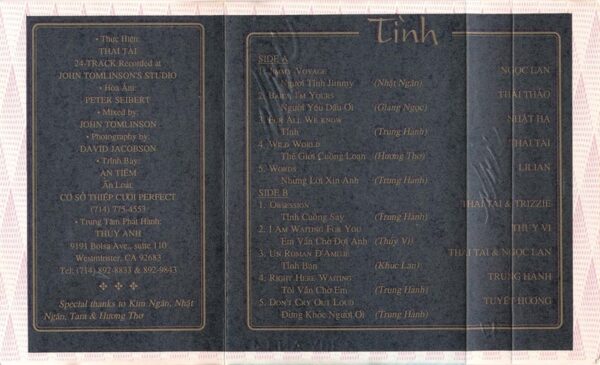 • Thực Hiện:
THÁI TÀI
24-TRACK Recorded at
JOHN TOMLINSON'S STUDIO
• Hòa Âm:
PETER SEIBERT
• Mixed by:
JOHN TOMLINSON
• Photography by:
DAVID JACOBSON
• Trình Bày:
AN TIÊM
Ấn Loát:
CƠ SỞ THIỆP CƯỚI PERFECT
(714) 775-4553
• Trung Tâm Phát Hành:
THÚY ANH
9191 Bolsa Ave., suite 110
Wesminster, CA 92683
Tel: (714) 892-8833 & 892-9843
Special thanks to Kim Ngân, Nhật
Ngân, Tara & Hương Thơ
Tình
SIDE A
1. JIMMY VOYAGE NGỌC LAN
Người Tình Jimmy (Nhật Ngân)
2. BABY, I'M YOURS THÁI THẢO
Người Yêu Dấu Ơi (Giang Ngọc)
3. FOR ALL WE KNOW NHẬT HẠ
Tình (Trung Hành)
4. WILD WORLD THÁI TÀI
Thế Giới Cuồng Loạn (Hương Thơ)
5. WORDS LILIAN
Những Lời Xin Anh (Trung Hành)
SIDE B
1. OBSESSION THÁI TÀI & TRIZZIE
Tình Cuồng Say (Trung Hành)
2. I AM WAITING FOR YOU THÚY VI
Em Vẫn Chờ Đợi Anh (Thúy Vi)
3. UN ROMAN D'AMITIE THÁI TÀI & NGỌC LAN
Tình Bạn (Khúc Lan)
4. RIGHT HERE WAITING TRUNG HÀNH
Tôi Vẫn Chờ Em (Trung Hành)
5. DON'T CRY OUT LOUD TUYẾT HƯƠNG
Đừng Khóc Người Ơi (Trung Hành)